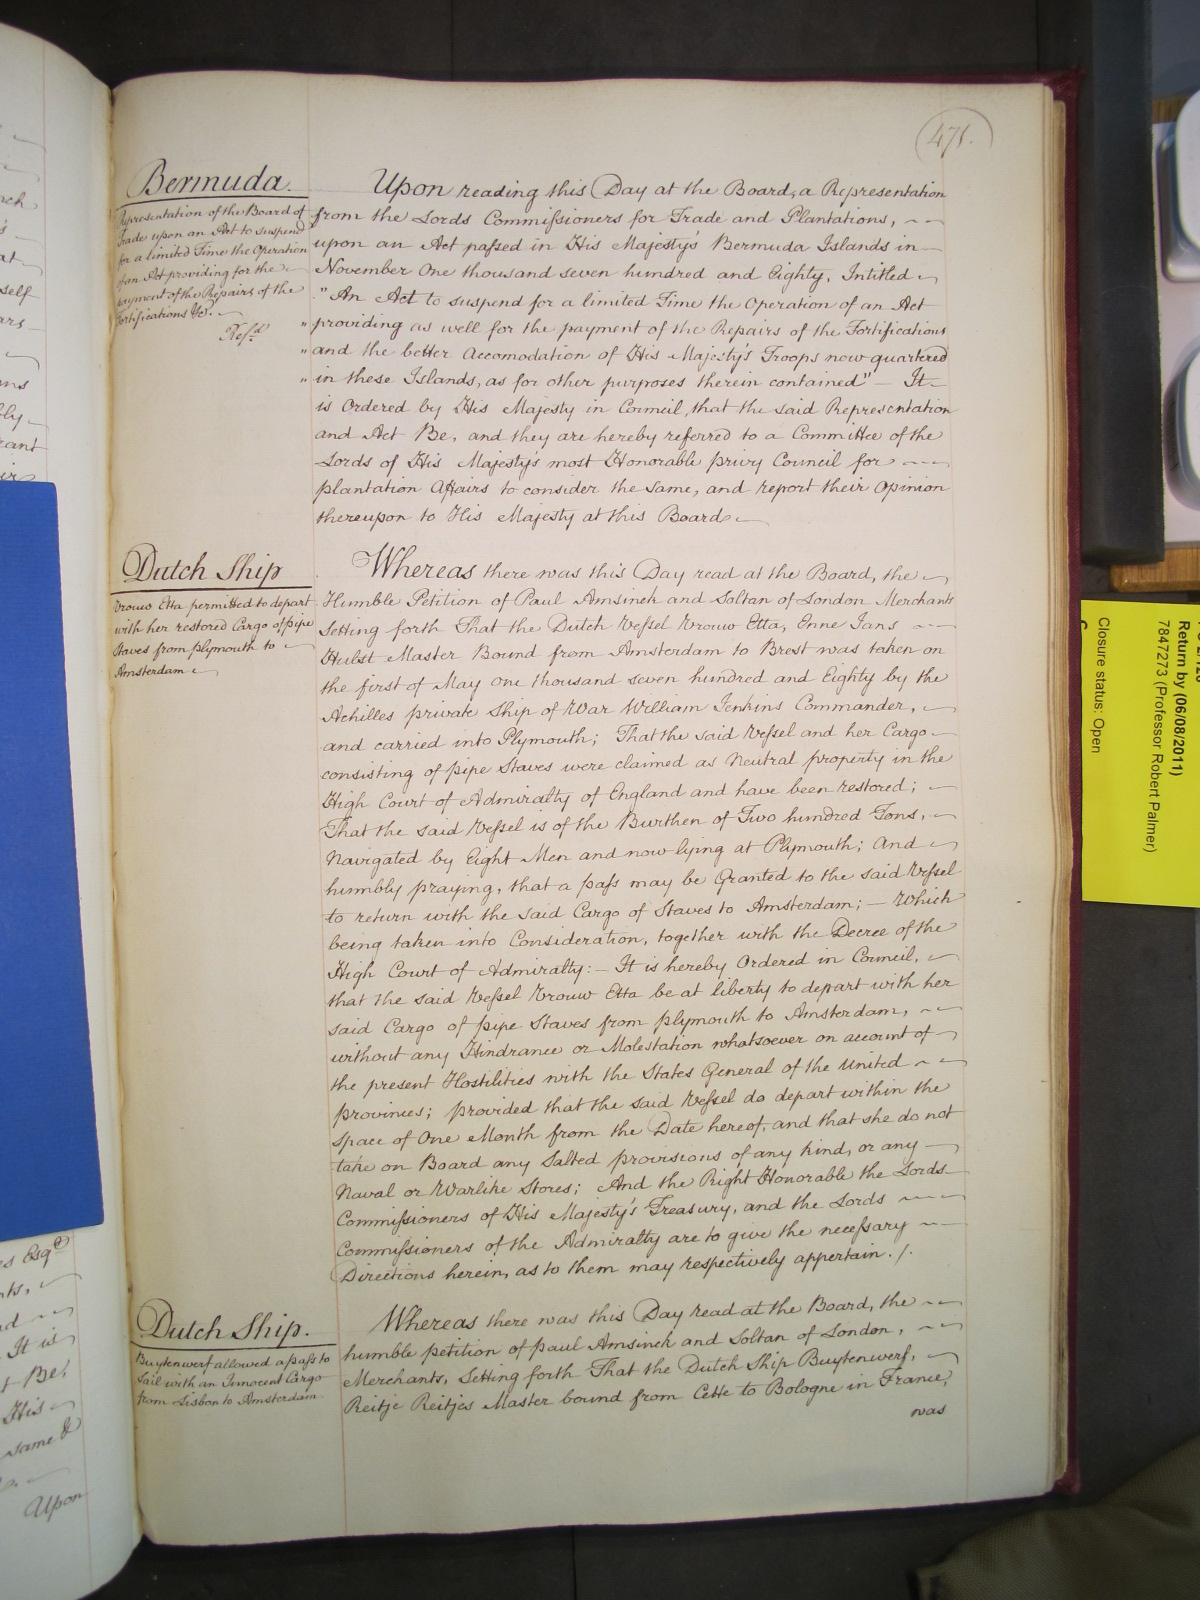 471.
Bermuda.
Representation of the Board of
Trade upon an Act to suspend
for a limited Time the Operation
of an Act providing for the
payment of the Repairs of the
Fortifications &c.
Refd
Upon reading this Day at the Board, a Representation
from the Lords Commissioners for Trade and Plantations,
upon an Act passed in His Majesty's Bermuda Islands in
November One thousand seven hundred and Eighty, Intitled
"An Act to suspend for a limited Time the Operation of an Act
"providing as well for the payment of the Repairs of the Fortifications
"and the better Accomodation of His Majesty's Troops now quartered
"in these Islands, as for other purposes therein contained" — It
is Ordered by His Majesty in Council, that the said Representation
and Act Be, and they are hereby referred to a Committee of the
Lords of His Majesty's most Honorable privy Council for
plantation Affairs to consider the same, and report their Opinion
thereupon to His Majesty at this Board.
Dutch Ship
Vrouw Etta permitted to depart
with her restored Cargo of pipe
Staves from plymouth to
Amsterdam
Whereas there was this Day read at the Board, the
Humble Petition of Paul Amsinck and Soltan of London Merchants
Setting forth That the Dutch Vessel Vrouw Etta, Enne Jans
Hulst Master Bound from Amsterdam to Brest was taken on
the first of May one thousand seven hundred and Eighty by the
Achilles private Ship of War William Jenkins Commander,
and carried into Plymouth; That the said Vessel and her Cargo
consisting of pipe Staves were claimed as Neutral property in the
High Court of Admiralty of England and have been restored;
That the said Vessel is of the Burthen of Two hundred Tons,
Navigated by Eight Men and now lying at Plymouth; And
humbly praying, that a pass may be Granted to the said Vessel
to return with the said Cargo of Staves to Amsterdam; — Which
being taken into Consideration, together with the Decree of the
High Court of Admiralty: — It is hereby Ordered in Council,
that the said Vessel Vrouw Etta be at liberty to depart with her
said Cargo of pipe Staves from plymouth to Amsterdam,
without any Hindrance or Molestation whatsoever on account of
the present Hostilities with the States General of the United
provinces; provided that the said Vessel do depart within the
space of One Month from the Date hereof, and that she do not
take on Board any Salted provisions of any kind, or any
Naval or Warlike Stores; And the Right Honorable the Lords
Commissioners of His Majesty's Treasury, and the Lords
Commissioners of the Admiralty are to give the necessary
Directions herein, as to them may respectively appertain. /.
Dutch Ship.
Buytenwerf allowed a pass to
Sail with an Innocent Cargo
from Lisbon to Amsterdam
Whereas there was this Day read at the Board, the
humble petition of paul Amsinck and Soltan of London,
Merchants, Setting forth That the Dutch Ship Buytenwerf,
Reitje Reitjes Master bound from Cette to Bologne in France,
was
s Esqe
It is
Be,
His
same &
Upon
Return by (06/08/2011)
7847273 (Professor Robert Palmer)
Closure status: Open